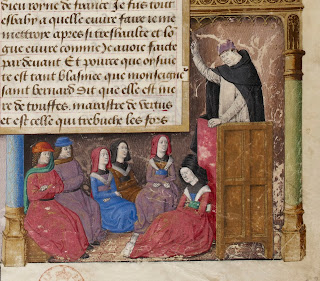 dieu royne de france Je fus tout
esbahy a quelle euure faire je me
mettroye apres si treshaulte et lo
gue euure comme jauoie faicte
par deuant Et pource que oysiu
te est tant blasmee que monseignr
saint bernard dit que elle est me
re de touffes, marastre de vertus
et est celle qui trebuche les fors